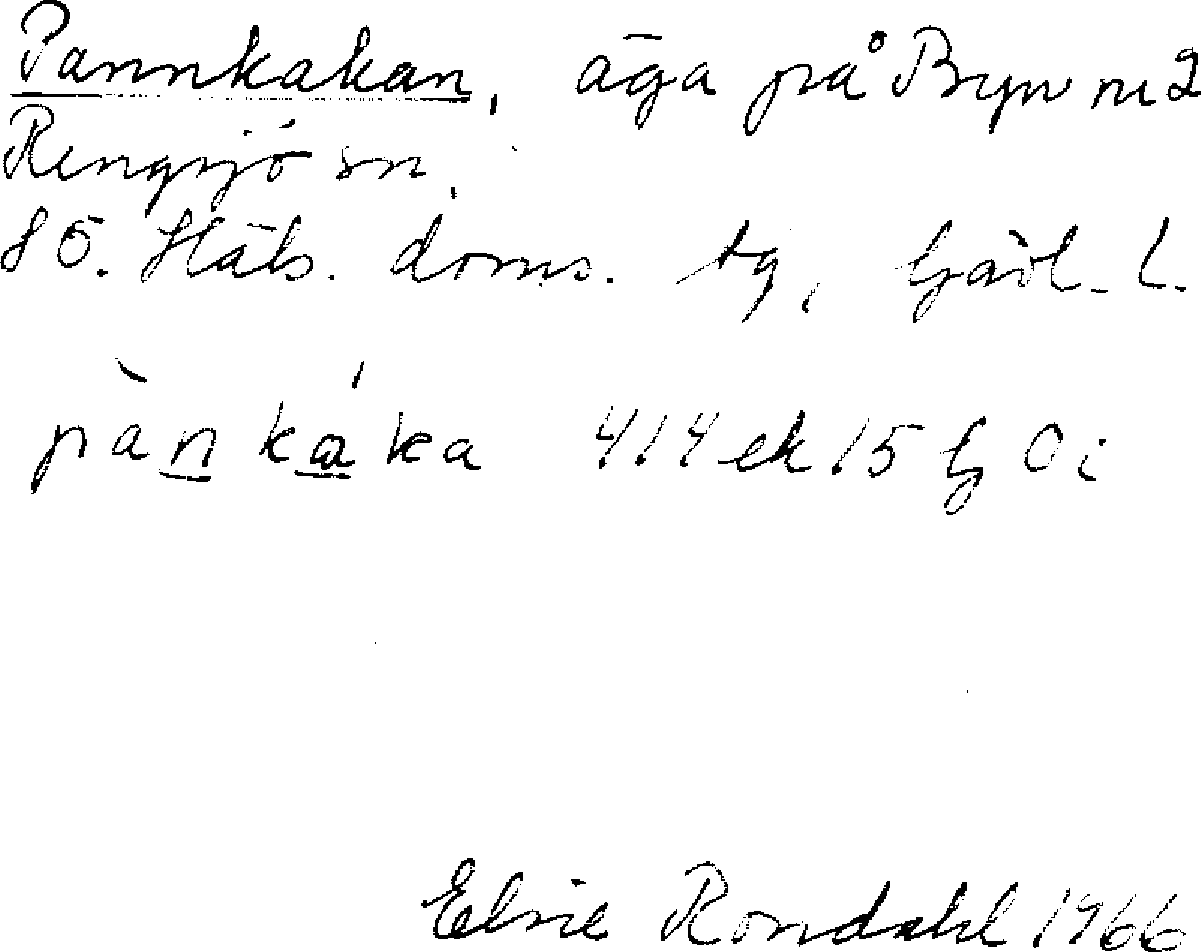 Pannkakan, äga på Byn nr 2
Rengsjö sn.
SÖ. Häls. doms. tg, Gävl. L.
pànkáka 414 ek 15 hj Oi
Elsie Rondahl 1966